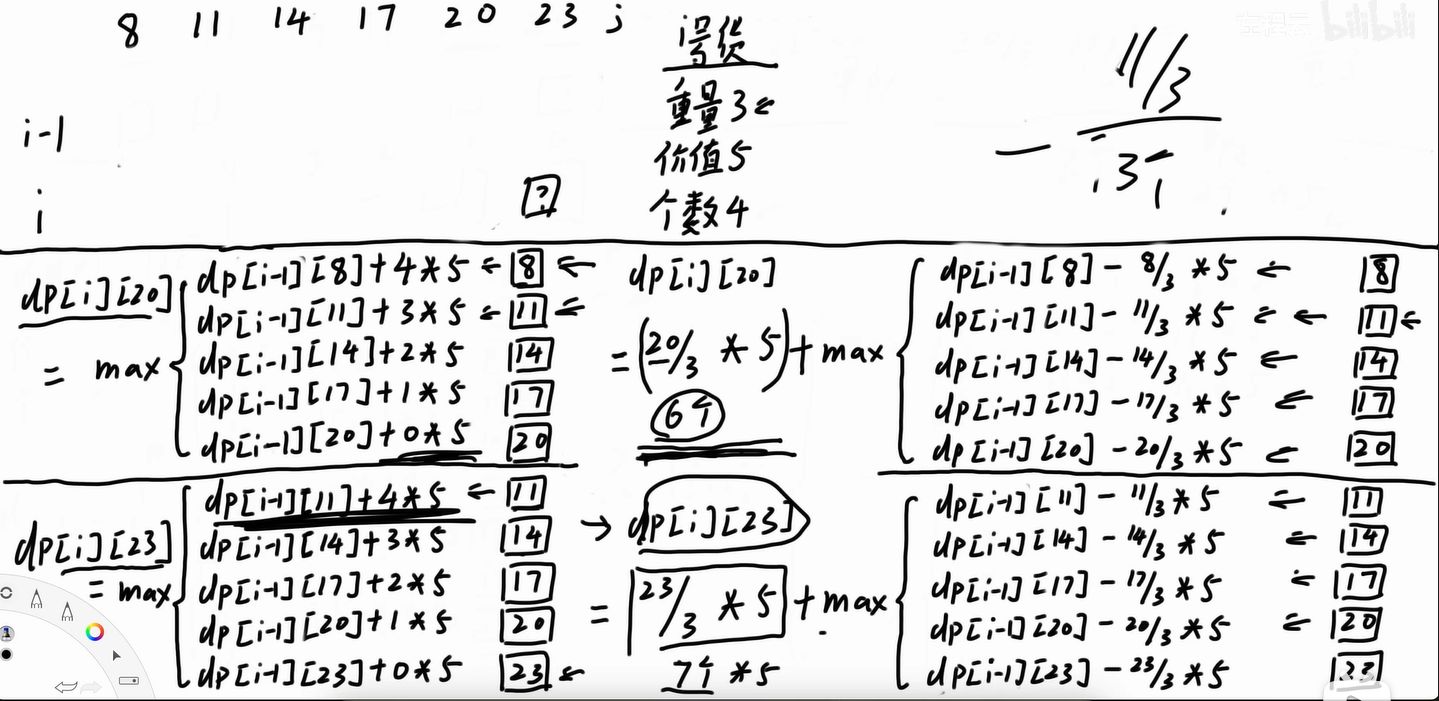 8 11 14 17 20 23 j
i号货
重量3
价值5
个数4
i-1
i
?
11/3
3个
左程云 bilibili
dp[i][20]
= max
dp[i-1][8]+4*5 ← 8 ←
dp[i-1][11]+3*5 ← 11 ←
dp[i-1][14]+2*5 14
dp[i-1][17]+1*5 17
dp[i-1][20]+0*5 20
dp[i][20]
= (20/3 * 5) + max
6个
dp[i-1][8] - 8/3 *5 ← 8
dp[i-1][11] - 11/3 *5 ← ← 11 ←
dp[i-1][14] - 14/3 *5 ← 14
dp[i-1][17] - 17/3 *5 ← 17
dp[i-1][20] - 20/3 *5 ← 20
dp[i][23]
= max
dp[i-1][11]+4*5 ← 11
dp[i-1][14]+3*5 14
dp[i-1][17]+2*5 17
dp[i-1][20]+1*5 20
dp[i-1][23]+0*5 23 ←
→ dp[i][23]
= 23/3 *5 + max
7个 *5
dp[i-1][11] - 11/3 *5 ← 11
dp[i-1][14] - 14/3 *5 ← 14
dp[i-1][17] - 17/3 *5 ← 17
dp[i-1][20] - 20/3 *5 ← 20
dp[i-1][23] - 23/3 *5 23